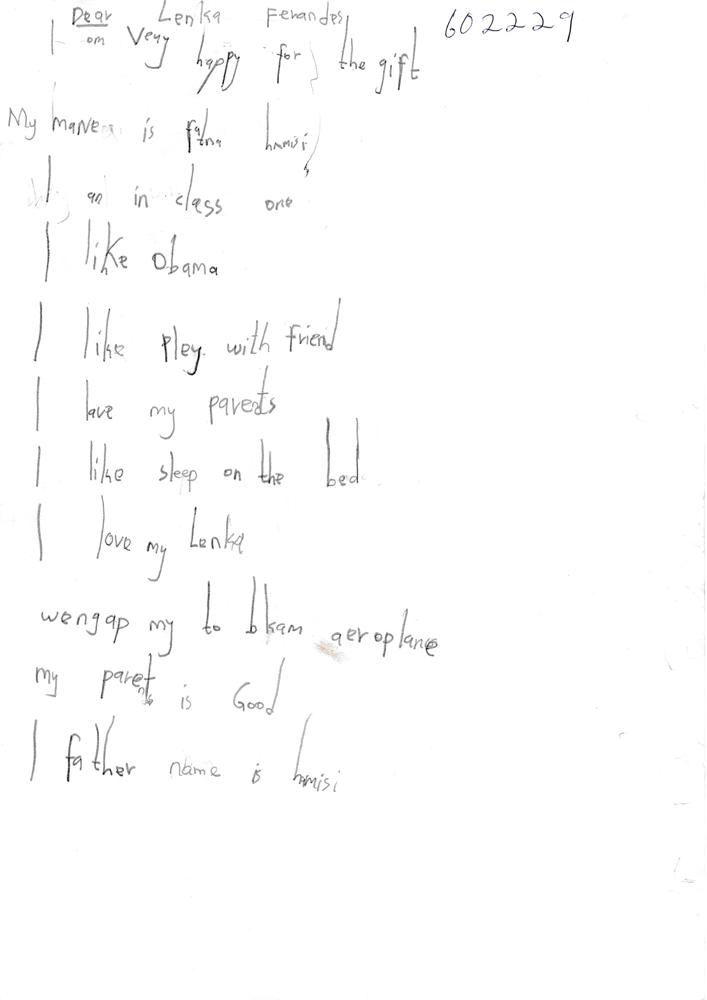 Dear Lenka Ferandes 602229
I om Veay happy for the gift
My maNe is fatna hmmisi
I an in class one
I like Obama
I like pley with friend
I lave my parents
I like sleep on the bed
I love my Lenka
wengap my to bkam aeroplane
my parents is Good
I father name is hmmisi